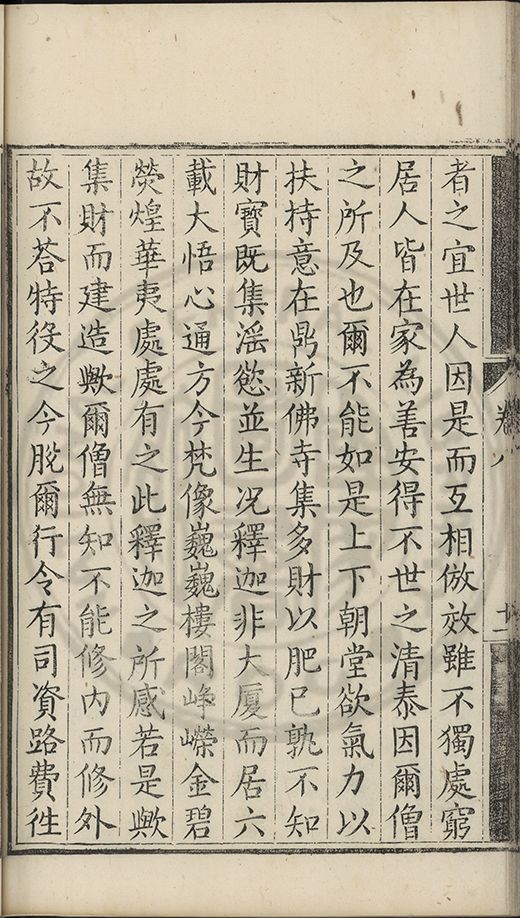 者之宜世人因是而互相倣效雖不獨處窮
居人皆在家為善安得不世之清泰因爾僧
之所及也爾不能如是上下朝堂欲氣力以
扶持意在鼎新佛寺集多財以肥已孰不知
財寶既集滛慾並生况釋迦非大厦而居六
載大悟心通方今梵像巍巍樓閣崢嶸金碧
熒煌華夷處處有之此釋迦之所感若是歟
集財而建造歟爾僧無知不能修内而修外
故不荅特役之今脫爾行令有司資路費徃
卷八
十二